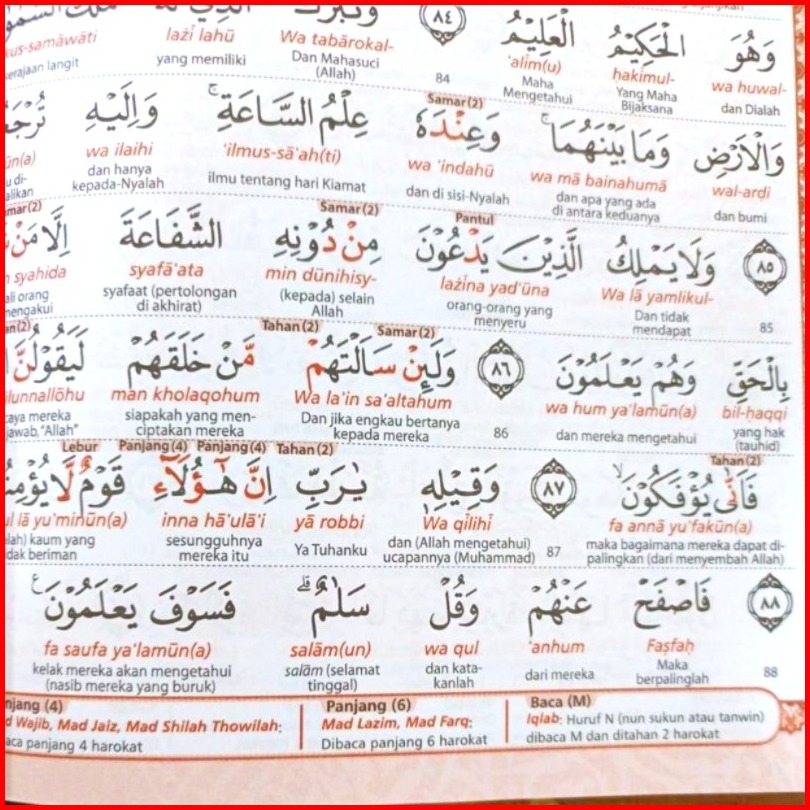 وَهُوَ الْحَكِيْمُ الْعَلِيْمُ ٨٤ وَتَبٰرَكَ الَّذِيْ لَهٗ
wa huwal- ḥakimul- 'alīm(u) Wa tabārokal- lażī lahū kus-samāwāti
dan Dialah Yang Maha Bijaksana Maha Mengetahui 84 Dan Mahasuci (Allah) yang memiliki kerajaan langit
Samar (2)
وَالْاَرْضِ وَمَا بَيْنَهُمَاۚ وَعِنْدَهٗ عِلْمُ السَّاعَةِۚ وَاِلَيْهِ
wal-arḍi wa mā bainahumā wa 'indahū 'ilmus-sā'ah(ti) wa ilaihi
dan bumi dan apa yang ada di antara keduanya dan di sisi-Nyalah ilmu tentang hari Kiamat dan hanya kepada-Nyalah
Pantul Samar (2)
٨٥ وَلَا يَمْلِكُ الَّذِيْنَ يَدْعُوْنَ مِنْ دُوْنِهِ الشَّفَاعَةَ اِلَّا مَنْ
Wa lā yamlikul- lażīna yad'ūna min dūnihisy- syafā'ata syahida
85 Dan tidak mendapat orang-orang yang menyeru (kepada) selain Allah syafaat (pertolongan di akhirat) orang
Samar (2) Tahan (2)
بِالْحَقِّ وَهُمْ يَعْلَمُوْنَ ٨٦ وَلَىِٕنْ سَاَلْتَهُمْ مَّنْ خَلَقَهُمْ لَيَقُوْلُنَّ
bil-ḥaqqi wa hum ya'lamūn(a) Wa la'in sa'altahum man kholaqohum
yang hak (tauhid) dan mereka mengetahui 86 Dan jika engkau bertanya kepada mereka siapakah yang menciptakan mereka mereka "Allah"
Tahan (2) Tahan (2) Panjang (4) Panjang (4) Lebur
فَاَنّٰى يُؤْفَكُوْنَۙ ٨٧ وَقِيْلِهٖ يٰرَبِّ اِنَّ هٰٓؤُلَاۤءِ قَوْمٌ لَّا
fa annā yu'fakūn(a) Wa qīlihī yā robbi inna hā'ulā'i lā yu'minūn(a)
maka bagaimana mereka dapat dipalingkan (dari menyembah Allah) 87 dan (Allah mengetahui) ucapannya (Muhammad) Ya Tuhanku sesungguhnya mereka itu kaum yang beriman
٨٨ فَاصْفَحْ عَنْهُمْ وَقُلْ سَلٰمٌۗ فَسَوْفَ يَعْلَمُوْنَ ࣖ
Faṣfaḥ 'anhum wa qul salām(un) fa saufa ya'lamūn(a)
88 Maka berpalinglah dari mereka dan katakanlah salām (selamat tinggal) kelak mereka akan mengetahui (nasib mereka yang buruk)
(4)
Wajib, Mad Jaiz, Mad Shilah Thowilah:
panjang 4 harokat
Panjang (6)
Mad Lazim, Mad Farq:
Dibaca panjang 6 harokat
Baca (M)
Iqlab: Huruf N (nun sukun atau tanwin)
dibaca M dan ditahan 2 harokat